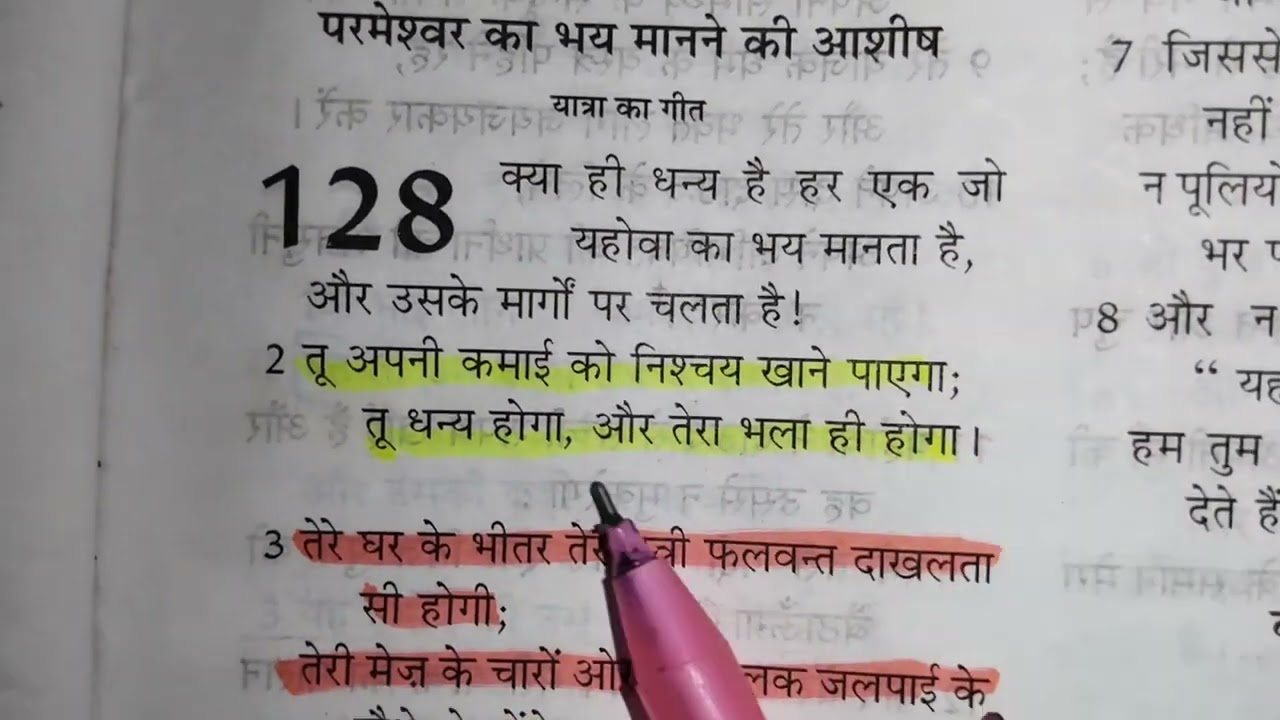 परमेश्वर का भय मानने की आशीष
यात्रा का गीत
128 क्या ही धन्य है हर एक जो
यहोवा का भय मानता है,
और उसके मार्गों पर चलता है!
2 तू अपनी कमाई को निश्चय खाने पाएगा;
तू धन्य होगा, और तेरा भला ही होगा।
3 तेरे घर के भीतर फलवन्त दाखलता
सी होगी;
तेरी मेज़ के चारों जलपाई के
7 जिससे
नहीं
न
भर
8 और न
“
हम तुम
देते हैं